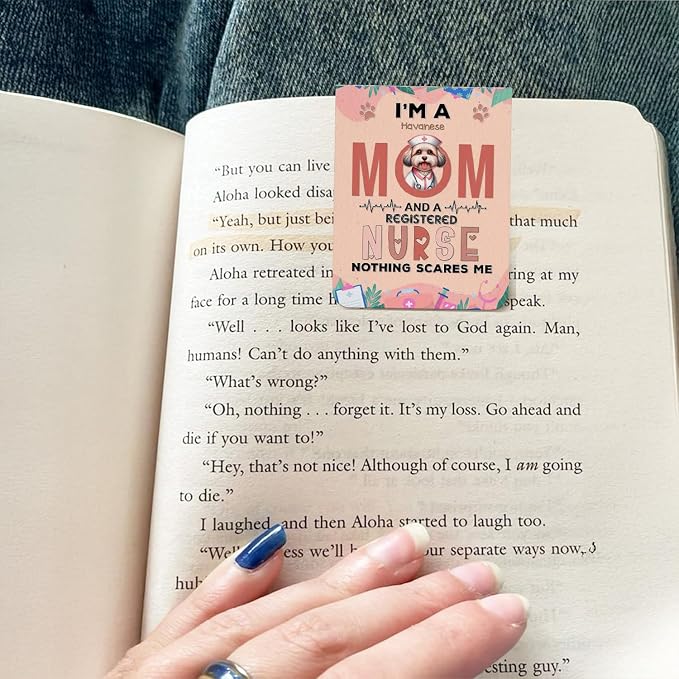 I'M A
Havanese
MOM
AND A
REGISTERED
NURSE
NOTHING SCARES ME
"But you can live
Aloha looked
"Yeah, but just that much
on its own. How you
Aloha retreated in at my
face for a long time speak.
"Well . . . looks like I've lost to God again. Man,
humans! Can't do anything with them."
"What's wrong?"
"Oh, nothing . . . forget it. It's my loss. Go ahead and
die if you want to!"
"Hey, that's not nice! Although of course, I am going
to die."
I laughed and then Aloha started to laugh too.
we'll separate ways now,
guy."